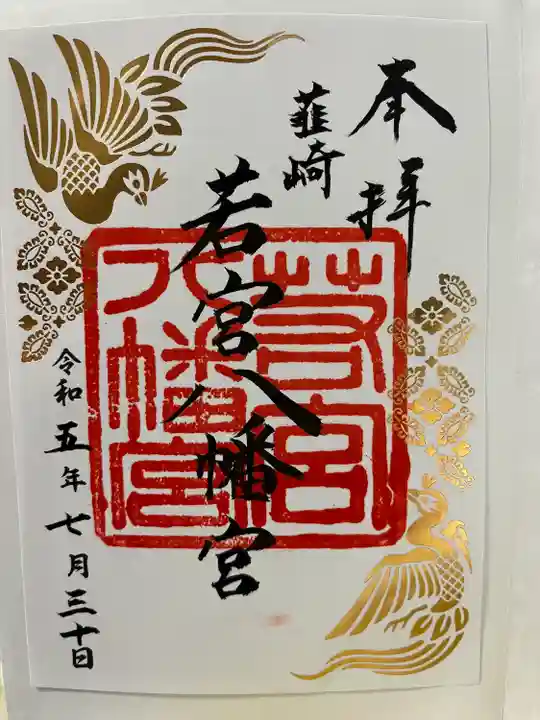 奉拝
韮崎
若宮八幡宮
若宮
八幡宮
令和五年七月三十日